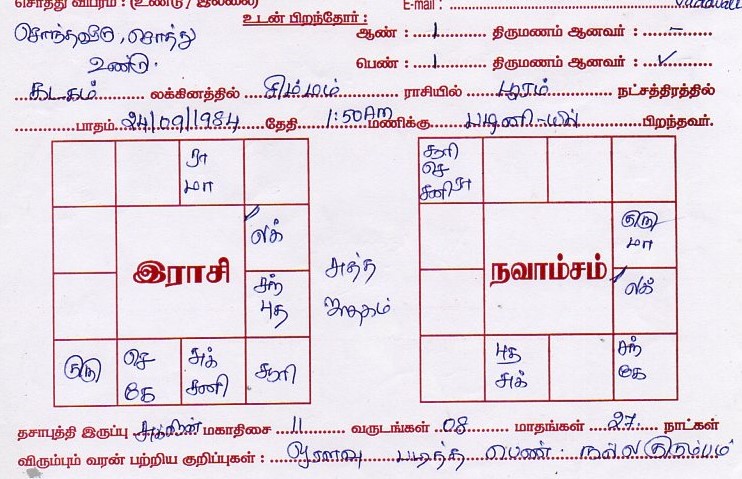 சொத்து விபரம் : (உண்டு / இல்லை)
E-mail :
உடன் பிறந்தோர் :
சொந்தவீடு, சொத்து உண்டு.
ஆண் : 1 திருமணம் ஆனவர் : -
பெண் : 1 திருமணம் ஆனவர் : ✓
கடகம் லக்கினத்தில் சிம்மம் ராசியில் பூரம் நட்சத்திரத்தில்
பாதம் 24/09/1984 தேதி 1:50 AM மணிக்கு பழனி-யில் பிறந்தவர்.
ரா
மா
லக்
சந்
புத
குரு
செ
கே
சுக்
சனி
சூரி
இராசி
சுத்த
ஜாதகம்
சூரி
செ
சனி ரா
குரு
மா
லக்
புத
சுக்
சந்
கே
நவாம்சம்
தசாபுத்தி இருப்பு சுக்கிரன் மகாதிசை 11 வருடங்கள் 08 மாதங்கள் 27 நாட்கள்
விரும்பும் வரன் பற்றிய குறிப்புகள் : ஓரளவு படித்த பெண். நல்ல குடும்பம்